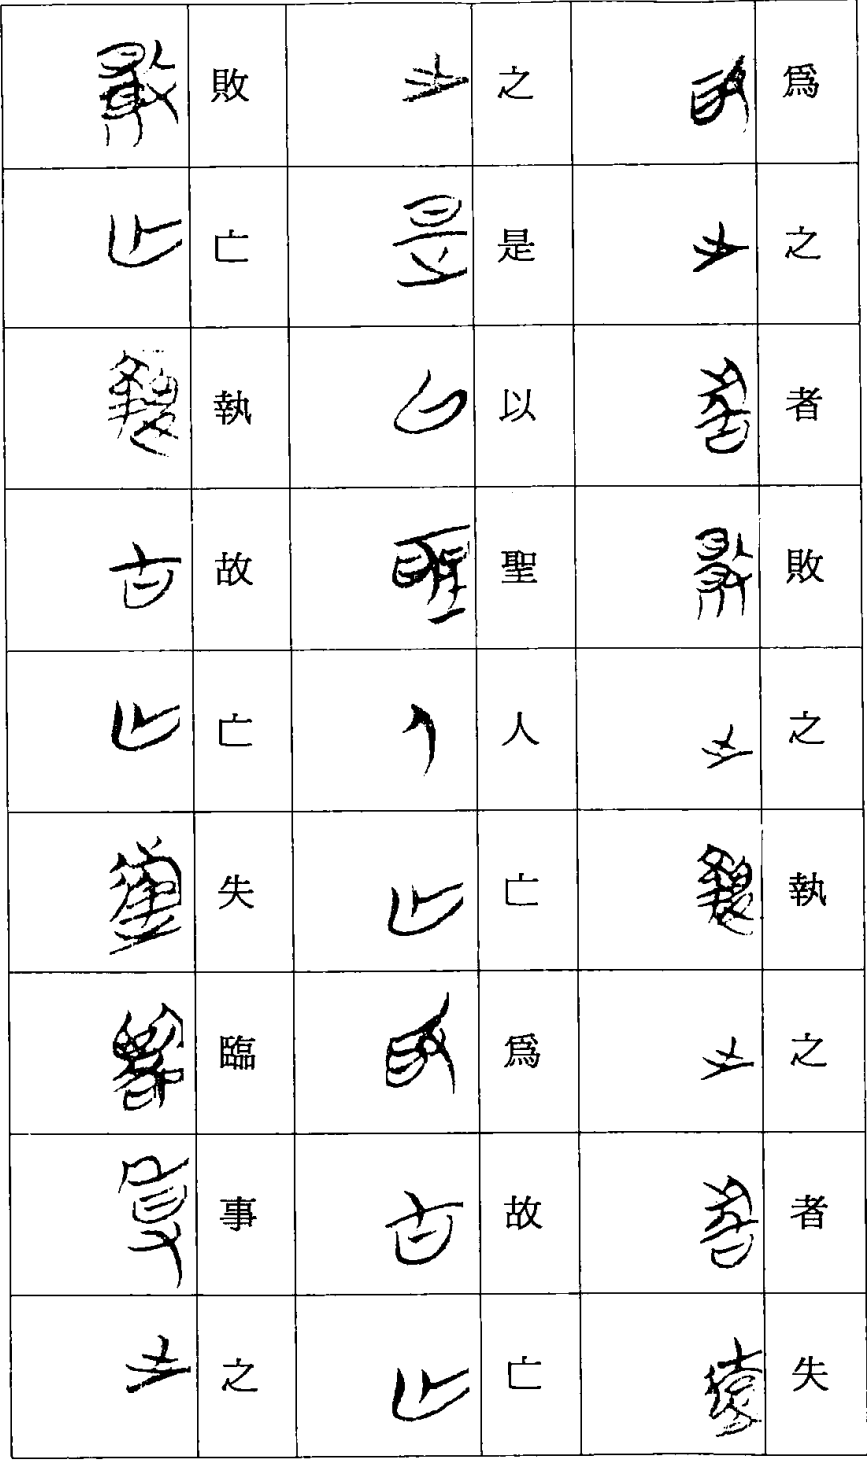 爲之者敗之執之者失
之是以聖人亡爲故亡
敗亡執故亡失臨事之